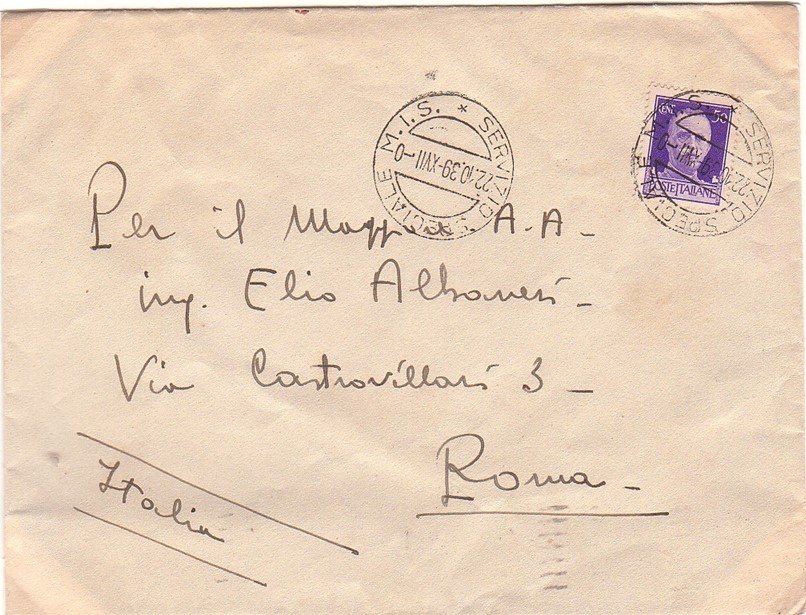 SERVIZIO SPECIALE M.I.S. *
22.10.39-XVII-0
CENT. 50
POSTE ITALIANE
SERVIZIO SPECIALE M.I.S. *
22.10.39-XVII-0
Per il Maggiore A.A-
ing. Elio Albanesi-
Via Castrovillari 3 -
Roma-
Italia